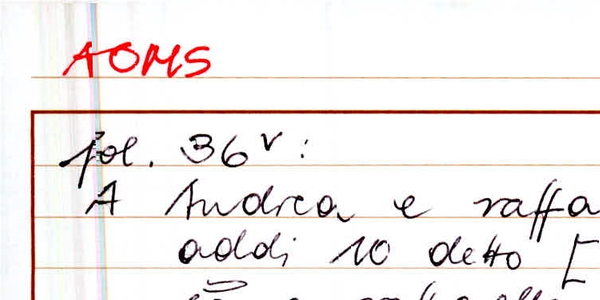 AOMS
fol. 36v:
A Andrea e raffa
addi 10 detto [